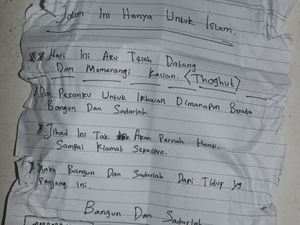 Jalan Ini Hanya Untuk Islam.
** Hari Ini Aku Telah Datang
Dan Memerangi Kalian. <Thoghut>
* Dan Pesanku Untuk Ikhwan Dimanapun Berada
Bangun Dan Sadarlah.
* Jihad Ini Tak Akan Pernah Henti
Sampai Kiamat
* Maka Bangun Dan Sadarlah Dari Tidur yg
Panjang Ini.
Bangun Dan Sadarlah